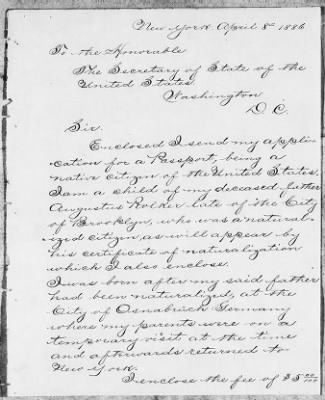 New York April 8th 1886
To the Honorable
The Secretary of State of the
United States.
Washington
D. C.
Sir.
Enclosed I send my appli-
cation for a Passport, being a
native citizen of the United States.
I am a child of my deceased father
Augustus Rolker late of the City
of Brooklyn, who was a natural-
ized citizen, as will appear by
his certificate of naturalization
which I also enclose.
I was born after my said father
had been naturalized, at the
City of Osnabrück Germany
where my parents were on a
temporary visit at the time
and afterwards returned to
New York.
I enclose the fee of $5 00/100